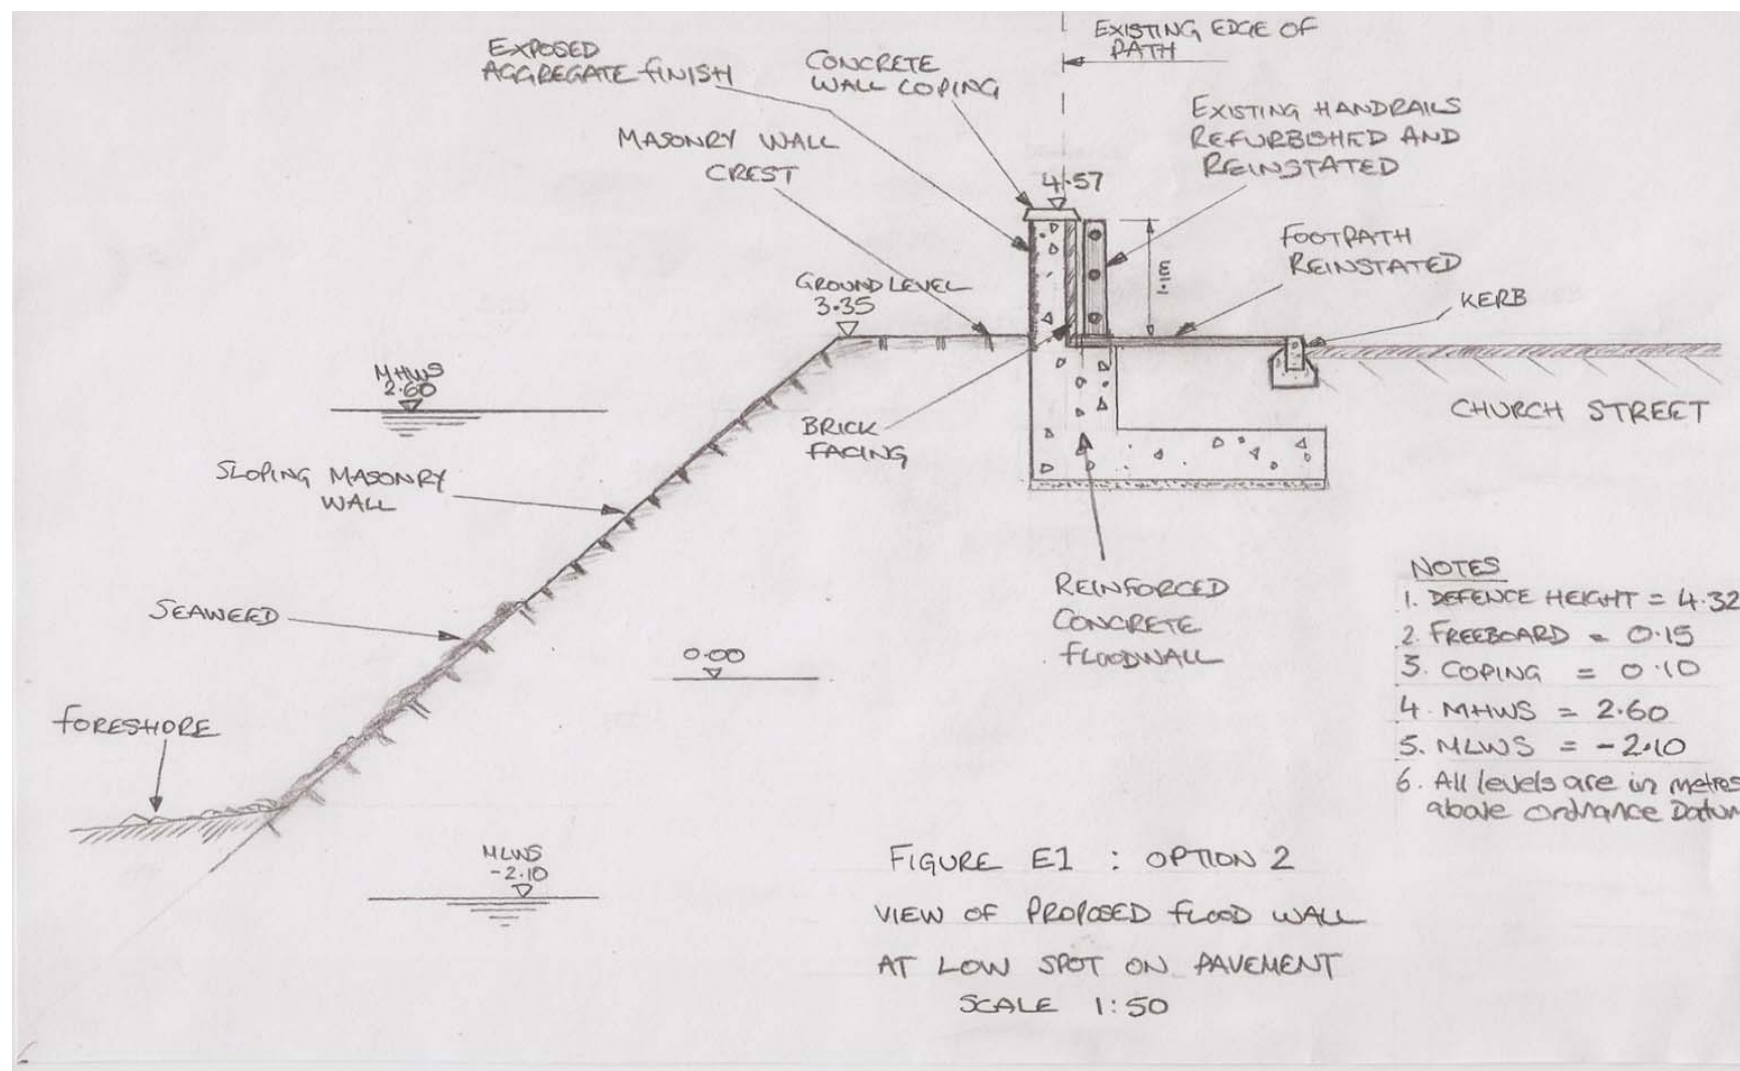 EXISTING EDGE OF
PATH
EXPOSED
AGGREGATE FINISH
CONCRETE
WALL COPING
EXISTING HANDRAILS
REFURBISHED AND
REINSTATED
MASONRY WALL
CREST
4.57
FOOTPATH
REINSTATED
GROUND LEVEL
3.35
KERB
MHWS
2.60
CHURCH STREET
BRICK
FACING
SLOPING MASONRY
WALL
REINFORCED
CONCRETE
FLOODWALL
SEAWEED
0.00
FORESHORE
MLWS
-2.10
NOTES
1. DEFENCE HEIGHT = 4.32
2. FREEBOARD = 0.15
3. COPING = 0.10
4. MHWS = 2.60
5. MLWS = -2.10
6. All levels are in metres
above ordnance Datum
FIGURE E1 : OPTION 2
VIEW OF PROPOSED FLOOD WALL
AT LOW SPOT ON PAVEMENT
SCALE 1:50